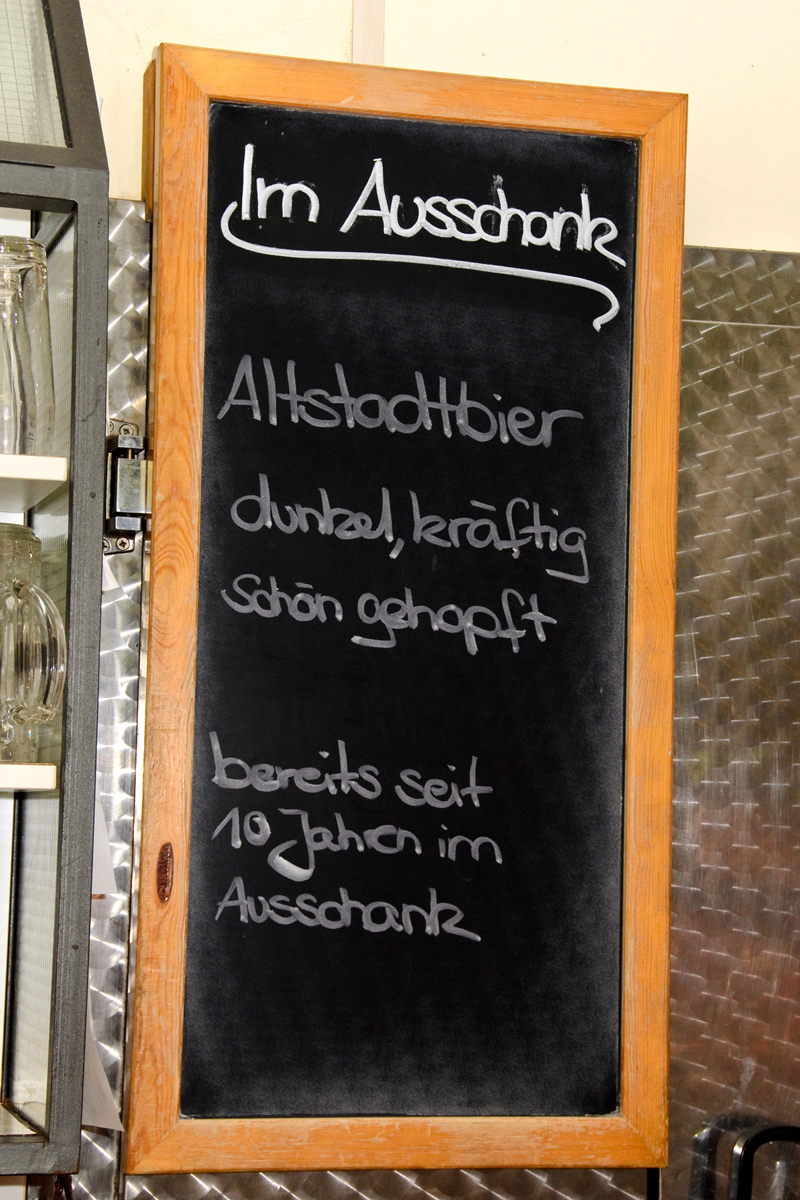 Im Ausschank
Altstadtbier
dunkel, kräftig
schön gehopft
bereits seit
10 Jahren im
Ausschank